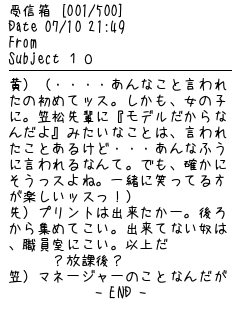 受信箱 [001/500]
Date 07/10 21:49
From
Subject １０
黄）（・・・・あんなこと言われ
たの初めてッス。しかも、女の子
に。笠松先輩に『モデルだからな
んだよ』みたいなことは、言われ
たことあるけど・・・あんなふう
に言われるなんて。でも、確かに
そうっスよね。一緒に笑ってる方
が楽しいッスっ！）
先）プリントは出来たかー。後ろ
から集めてこい。出来てない奴は
、職員室にこい。以上だ
？放課後？
笠）マネージャーのことなんだが
- END -